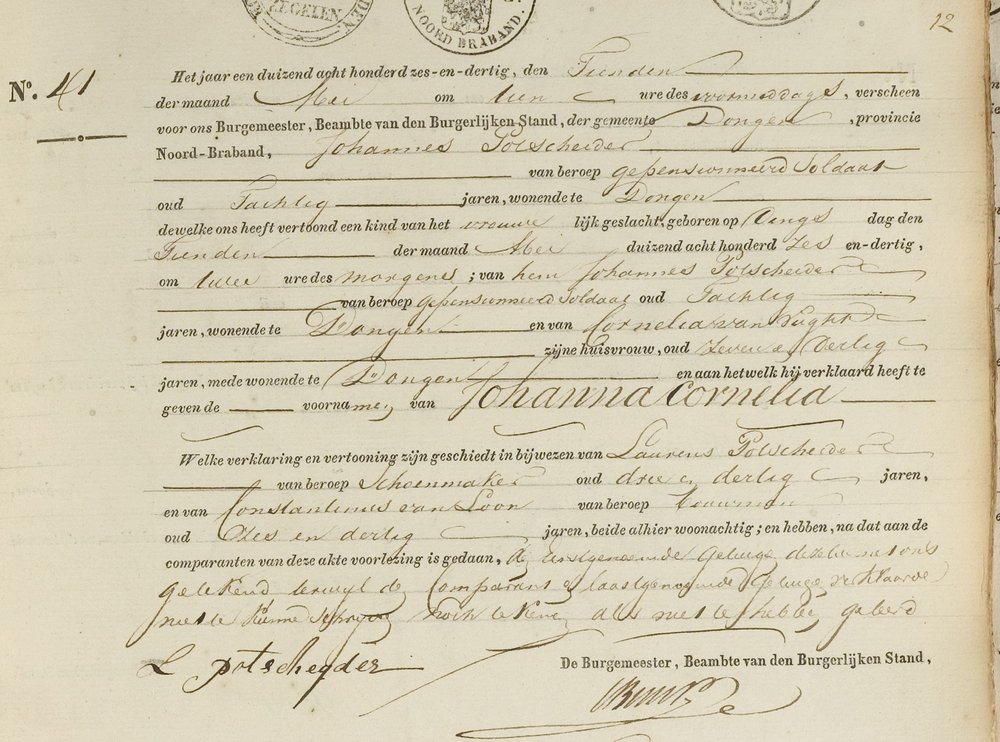 ZEGELEN
NOORD BRABAND.
12
N.º 41
Het jaar een duizend acht honderd zes-en-dertig, den Tienden
der maand Mei om tien ure des voormiddags, verscheen
voor ons Burgemeester, Beambte van den Burgerlijken Stand, der gemeente Dongen, provincie
Noord-Braband, Johannes Potscheider
van beroep gepensionneerd Soldaat
oud Tachtig jaren, wonende te Dongen
dewelke ons heeft vertoond een kind van het vrouwe lijk geslacht, geboren op Dings dag den
Tienden der maand Mei duizend acht honderd zes en-dertig,
om twee ure des morgens; van hem Johannes Potscheider
van beroep gepensionneerd Soldaat oud Tachtig
jaren, wonende te Dongen en van Cornelia van Vught
zijne huisvrouw, oud Zeven en Dertig
jaren, mede wonende te Dongen en aan hetwelk hij verklaard heeft te
geven de voornamen van Johanna Cornelia
Welke verklaring en vertooning zijn geschiedt in bijwezen van Laurens Potscheider
van beroep Schoenmaker oud drie en dertig jaren,
en van Constantinus van Loon van beroep bouwman
oud Zes en dertig jaren, beide alhier woonachtig; en hebben, na dat aan de
comparanten van deze akte voorlezing is gedaan, de eerstgenoemde getuige dezelve met ons
getekend terwijl de Comparant en laastgenoemde Getuige verklaarde
niet te kunne schrijven noch tekene als niet te hebbe geleerd
L potscheyder
De Burgemeester, Beambte van den Burgerlijken Stand,